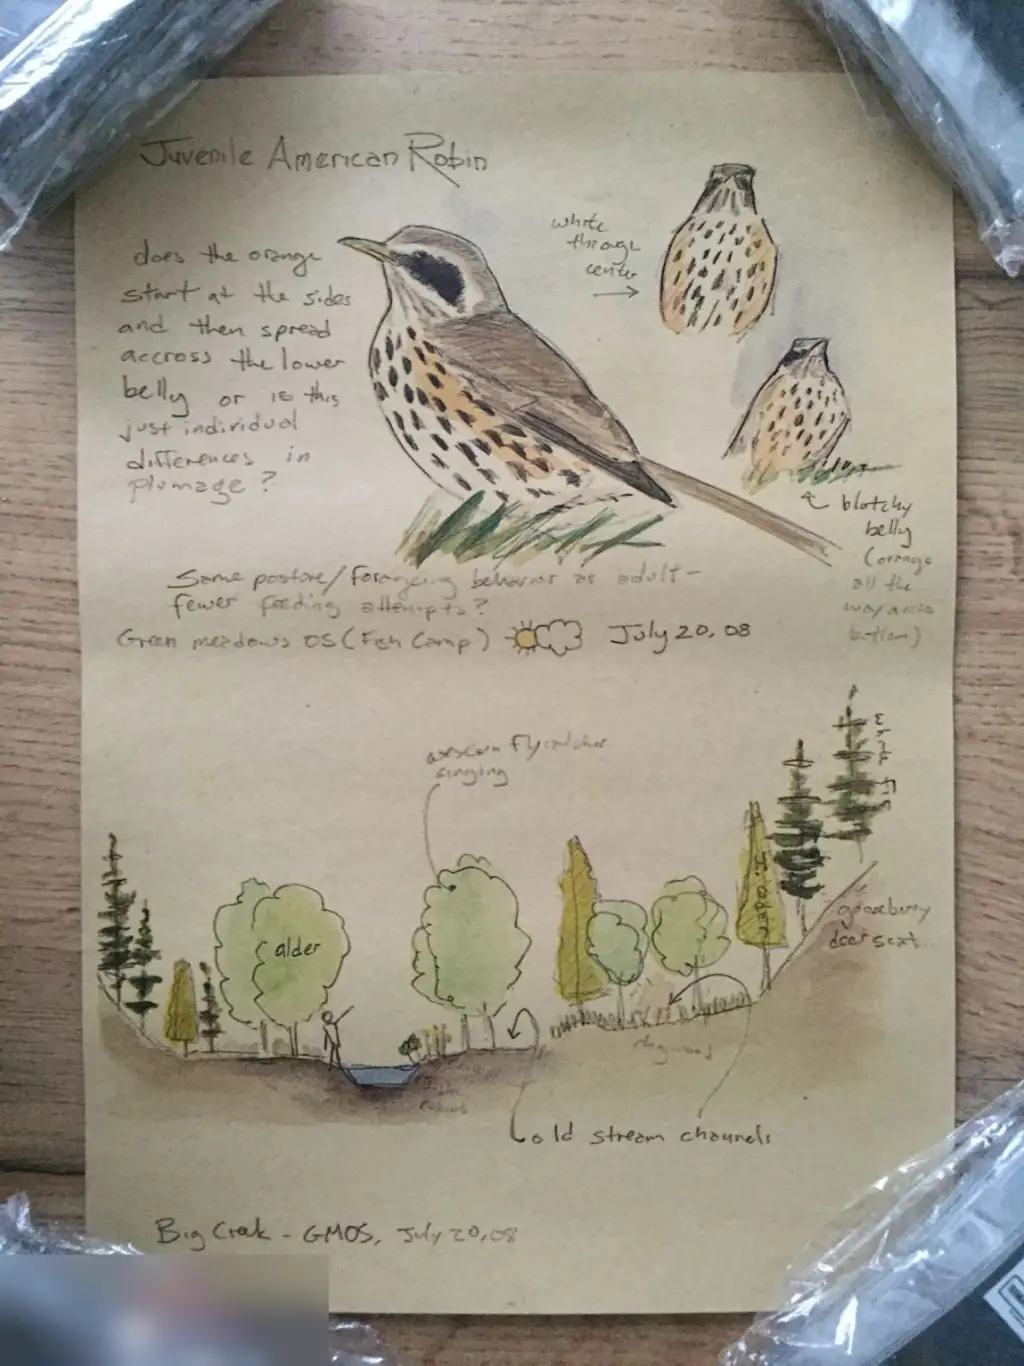 Juvenile American Robin
does the orange
start at the sides
and then spread
accross the lower
belly or is this
just individual
differences in
plumage?
white
through
center
blotchy
belly
(orange
all the
way across
bottom)
Same posture/foraging behavior as adult-
fewer feeding attempts?
Green meadows OS (Fish Camp)
July 20, 08
western flycatcher
singing
white fir
I. cedar
alder
gooseberry
deer scat
dogwood
old stream channels
Big Creek - GMOS, July 20, 08